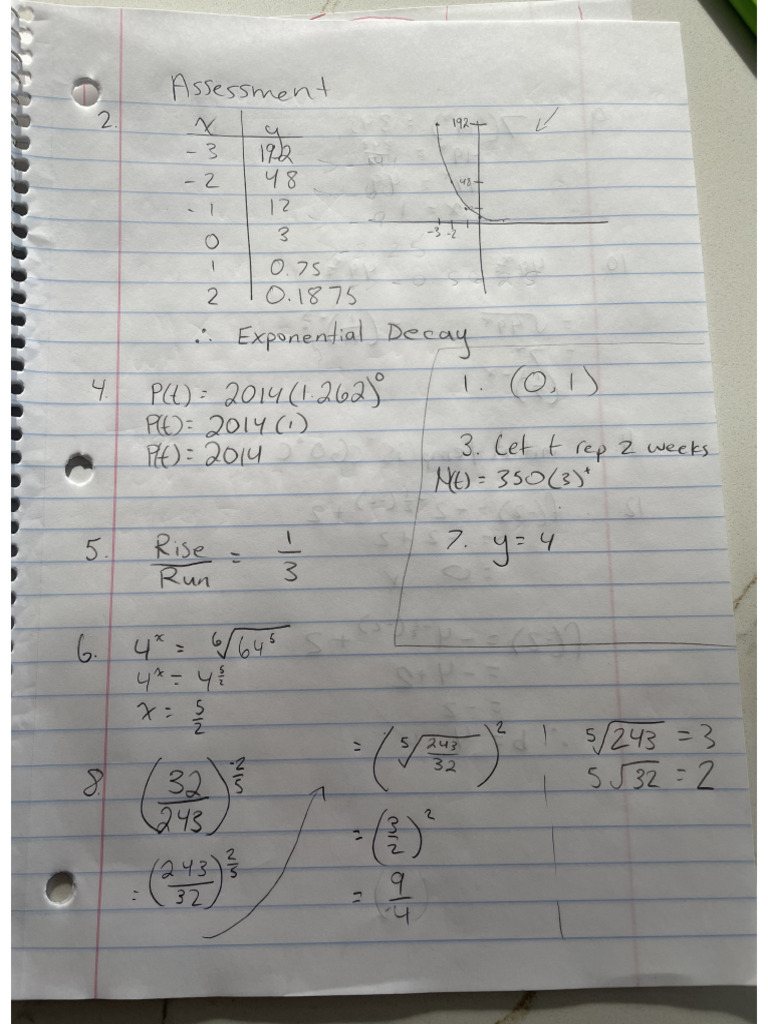 Assessment
2.
x y
-3 192
-2 48
-1 12
0 3
1 0.75
2 0.1875
192
48
-3 -2
∴ Exponential Decay
4. P(t) = 2014(1.262)⁰
P(t) = 2014(1)
P(t) = 2014
1. (0,1)
3. Let t rep 2 weeks
N(t) = 350(3)ᵗ
7. y = 4
5. Rise/Run = 1/3
6. 4ˣ = ⁶√64⁵
4ˣ = 4^(5/2)
x = 5/2
8. (32/243)^(-2/5)
= (243/32)^(2/5)
= (⁵√(243/32))²
= (3/2)²
= 9/4
5√243 = 3
5√32 = 2